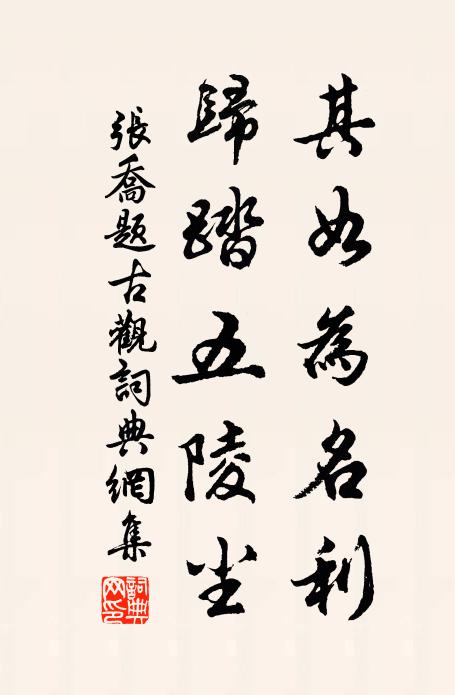 其如為名利
歸踏五陵尘
張喬題古觀詞典網集
詞典网印